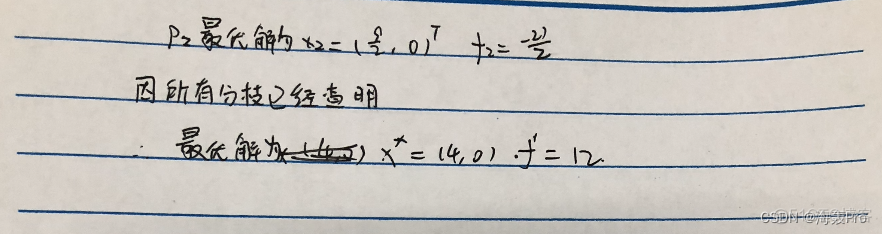 P₂最优解为 x₂=(9/2, 0)ᵀ f₂=-27/2
因所有分枝已经查明
∴ 最优解为 x*=(4,0) f=12
CSDN @海轰Pro